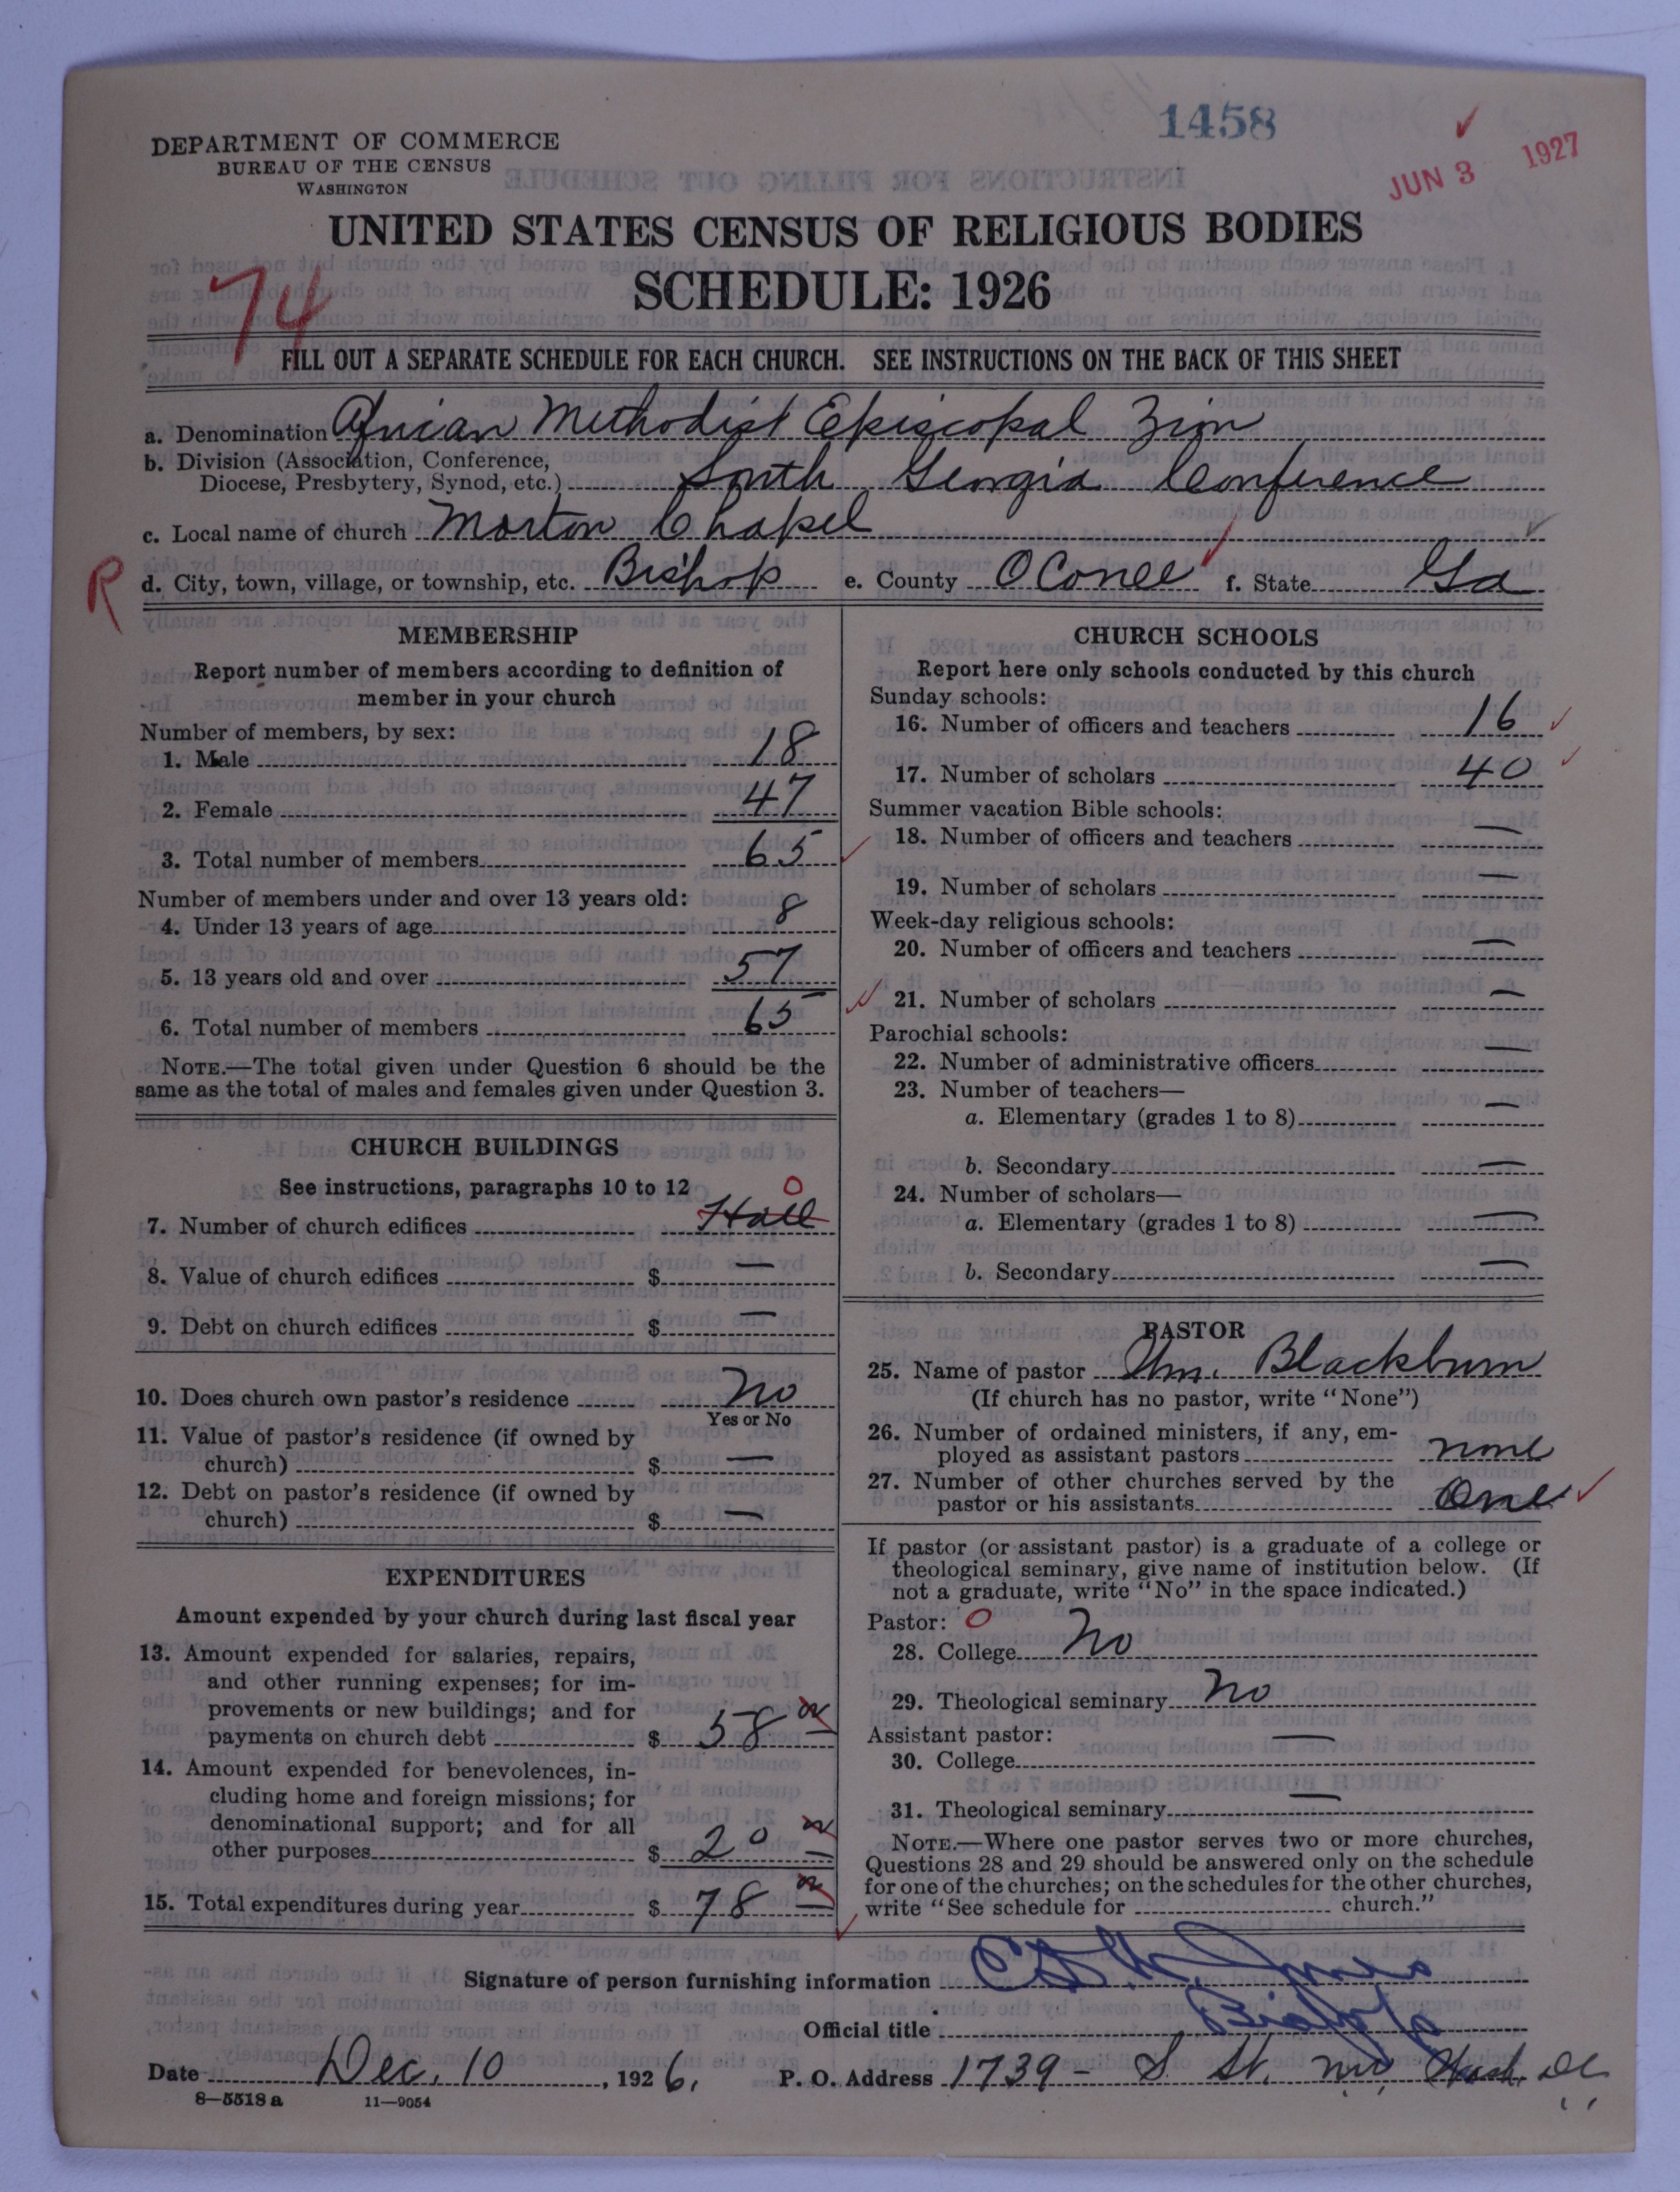 1458
JUN 3 1927
DEPARTMENT OF COMMERCE
BUREAU OF THE CENSUS
WASHINGTON
UNITED STATES CENSUS OF RELIGIOUS BODIES
SCHEDULE: 1926
74
FILL OUT A SEPARATE SCHEDULE FOR EACH CHURCH. SEE INSTRUCTIONS ON THE BACK OF THIS SHEET
a. Denomination African Methodist Episcopal Zion
b. Division (Association, Conference,
Diocese, Presbytery, Synod, etc.) South Georgia Conference
c. Local name of church Morton Chapel
R
d. City, town, village, or township, etc. Bishop e. County OConee f. State Ga
MEMBERSHIP
Report number of members according to definition of
member in your church
Number of members, by sex:
1. Male 18
2. Female 47
3. Total number of members 65
Number of members under and over 13 years old:
4. Under 13 years of age 8
5. 13 years old and over 57
6. Total number of members 65
NOTE.—The total given under Question 6 should be the
same as the total of males and females given under Question 3.
CHURCH BUILDINGS
See instructions, paragraphs 10 to 12
0
7. Number of church edifices Hall
8. Value of church edifices $ —
9. Debt on church edifices $ —
10. Does church own pastor's residence No
Yes or No
11. Value of pastor's residence (if owned by
church) $ —
12. Debt on pastor's residence (if owned by
church) $ —
EXPENDITURES
Amount expended by your church during last fiscal year
13. Amount expended for salaries, repairs,
and other running expenses; for im-
provements or new buildings; and for
payments on church debt $ 58
14. Amount expended for benevolences, in-
cluding home and foreign missions; for
denominational support; and for all
other purposes $ 20
15. Total expenditures during year $ 78
CHURCH SCHOOLS
Report here only schools conducted by this church
Sunday schools:
16. Number of officers and teachers 16
17. Number of scholars 40
Summer vacation Bible schools:
18. Number of officers and teachers —
19. Number of scholars —
Week-day religious schools:
20. Number of officers and teachers —
21. Number of scholars —
Parochial schools:
22. Number of administrative officers —
23. Number of teachers—
a. Elementary (grades 1 to 8) —
b. Secondary —
24. Number of scholars—
a. Elementary (grades 1 to 8) —
b. Secondary —
PASTOR
25. Name of pastor Wm. Blackburn
(If church has no pastor, write "None")
26. Number of ordained ministers, if any, em-
ployed as assistant pastors none
27. Number of other churches served by the
pastor or his assistants One
If pastor (or assistant pastor) is a graduate of a college or
theological seminary, give name of institution below. (If
not a graduate, write "No" in the space indicated.)
Pastor: 0
28. College No
29. Theological seminary No
Assistant pastor:
30. College —
31. Theological seminary —
NOTE.—Where one pastor serves two or more churches,
Questions 28 and 29 should be answered only on the schedule
for one of the churches; on the schedules for the other churches,
write "See schedule for church."
Signature of person furnishing information
Official title Bishop
Date Dec. 10, 1926. P. O. Address 1739 - S St. NW, Wash. DC
8—5518 a 11—9054